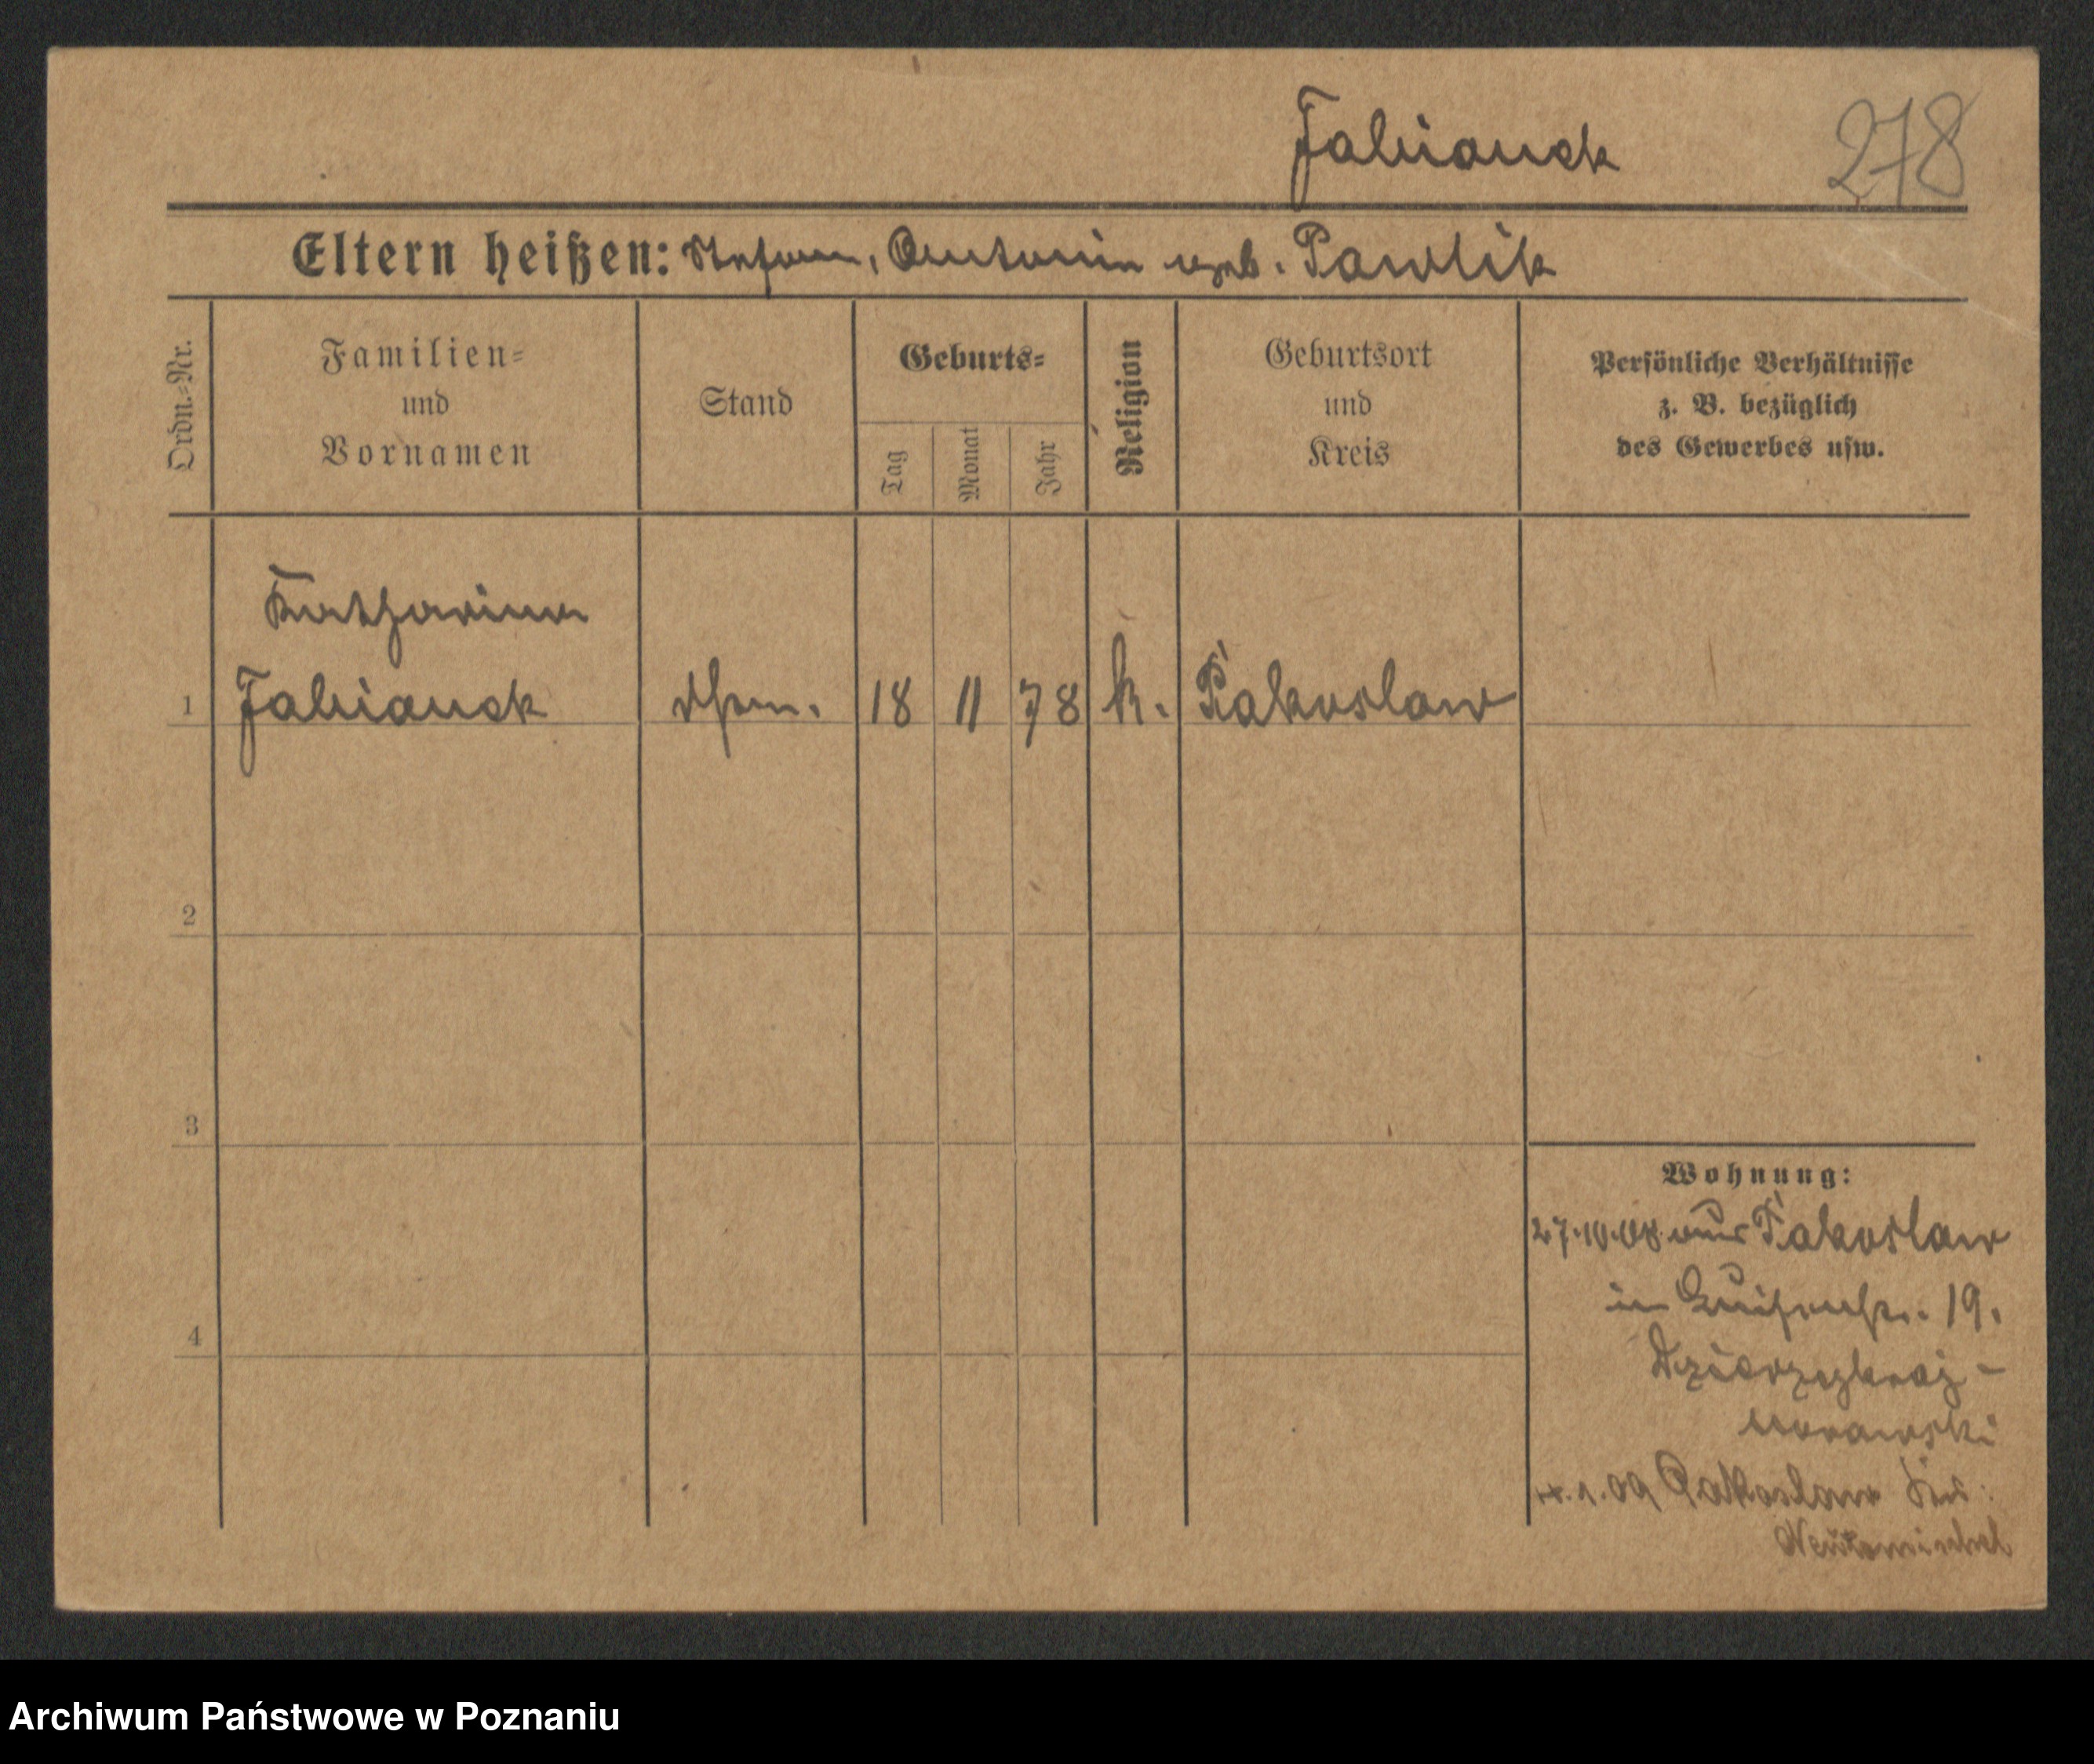 Fabianek
278
Eltern heißen: Stefan, Antonin geb. Pawlik
Ordn.-Nr.
Familien-
und
Vornamen
Stand
Geburts-
Tag
Monat
Jahr
Religion
Geburtsort
und
Kreis
Persönliche Verhältnisse
z. B. bezüglich
des Gewerbes usw.
Katharina
1 Fabianek 18 11 78 k. Pakoslaw
2
3
4
Wohnung:
27.10.08. aus Pakoslaw
in Luisenstr. 19.
Morawski
1.09 Pakoslaw Krs:
Neutomischel
Archiwum Państwowe w Poznaniu